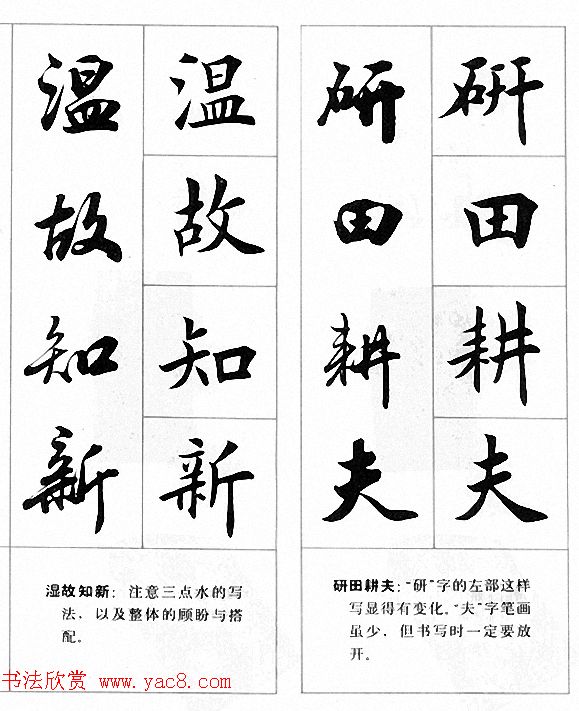 研田耕夫
研田耕夫
研田耕夫：“研”字的左部这样
写显得有变化。“夫”字笔画
虽少，但书写时一定要放
开。
温故知新
温故知新
湿故知新：注意三点水的写
法，以及整体的顾盼与搭
配。
书法欣赏 www.yac8.com